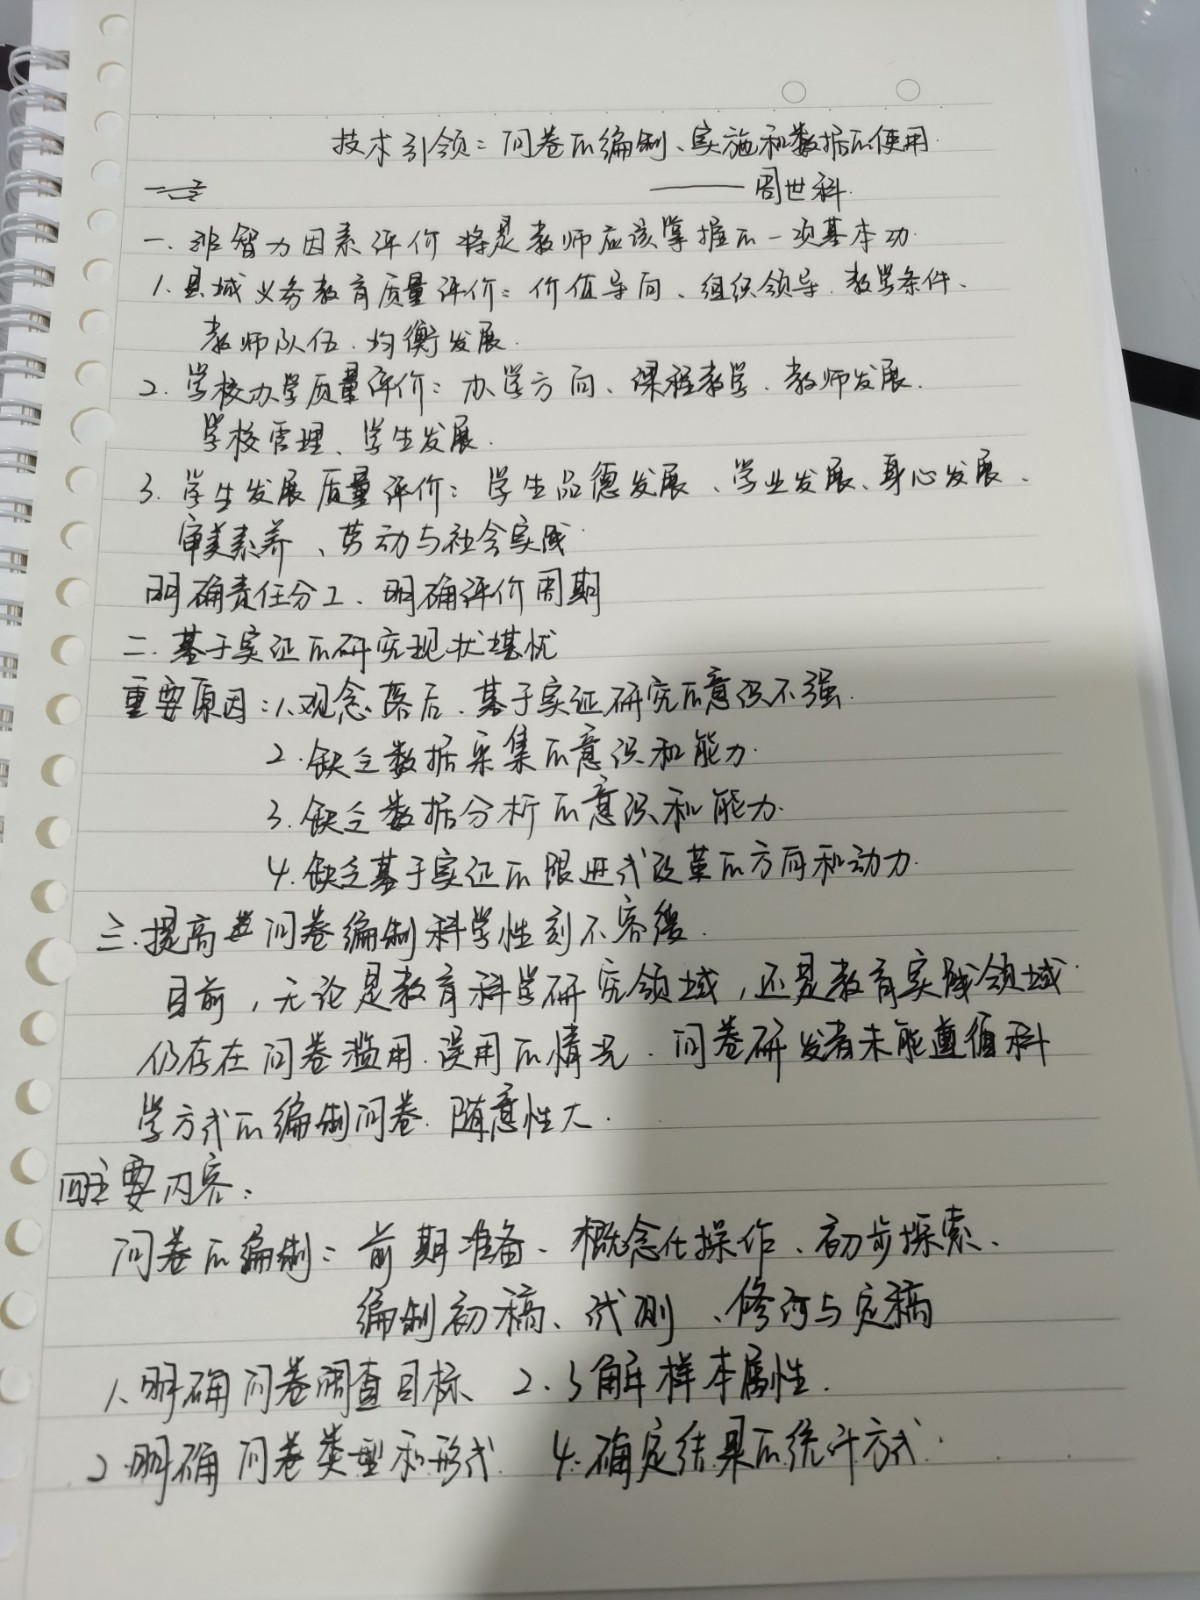 技术引领：问卷的编制、实施和数据的使用
——周世科
一、非智力因素评价将是教师应该掌握的一项基本功.
1、县域义务教育质量评价：价值导向、组织领导、教学条件、
教师队伍、均衡发展.
2、学校办学质量评价：办学方向、课程教学、教师发展.
学校管理、学生发展.
3、学生发展质量评价：学生品德发展、学业发展、身心发展、
审美素养、劳动与社会实践.
明确责任分工、明确评价周期
二、基于实证的研究现状堪忧
重要原因：1、观念落后、基于实证研究的意识不强.
2.缺乏数据采集的意识和能力.
3.缺乏数据分析的意识和能力.
4.缺乏基于实证的跟进式改革的方向和动力.
三.提高 问卷编制科学性刻不容缓.
目前，无论是教育科学研究领域，还是教育实践领域
仍存在问卷滥用、误用的情况.问卷研发者未能遵循科
学方式的编制问卷.随意性大.
四主要内容：
问卷的编制：前期准备、概念化操作、初步探索、
编制初稿、试测、修订与定稿
1、明确问卷调查目标、2.了解样本属性.
2.明确问卷类型和形式. 4.确定结果的统计方式.